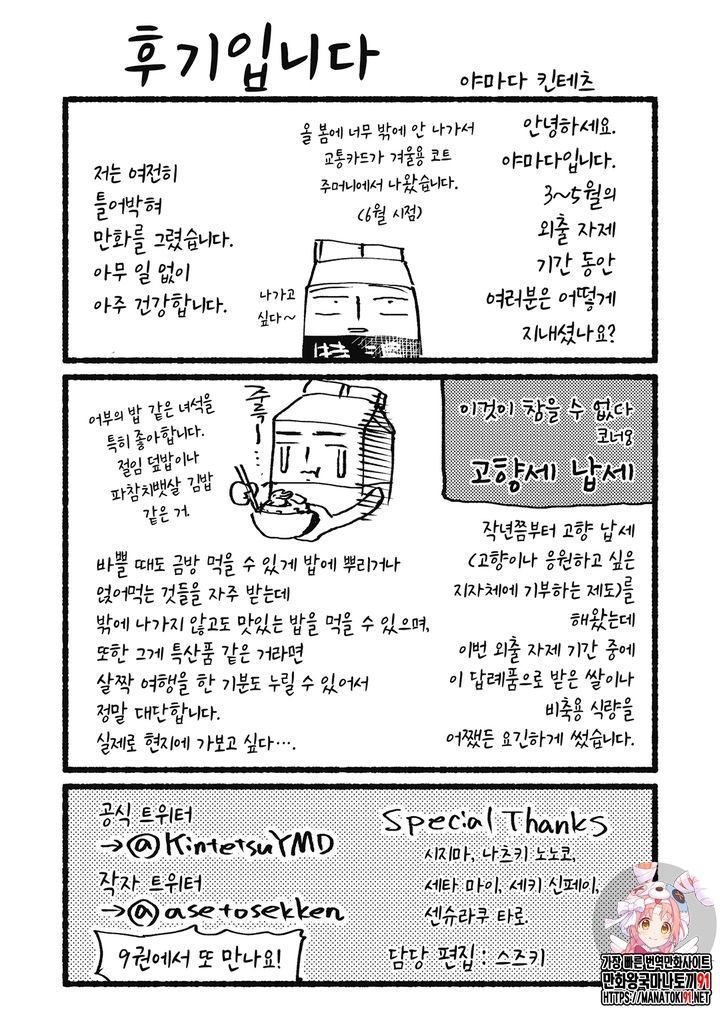 후기입니다
야마다 킨테츠
안녕하세요.
야마다입니다.
3~5월의
외출 자제
기간 동안
여러분은 어떻게
지내셨나요?
올 봄에 너무 밖에 안 나가서
교통카드가 겨울용 코트
주머니에서 나왔습니다.
(6월 시점)
나가고
싶다~
저는 여전히
틀어박혀
만화를 그렸습니다.
아무 일 없이
아주 건강합니다.
이것이 참을 수 없다
코너8
고향세 납세
작년쯤부터 고향 납세
(고향이나 응원하고 싶은
지자체에 기부하는 제도)를
해왔는데
이번 외출 자제 기간 중에
이 답례품으로 받은 쌀이나
비축용 식량을
어쨌든 요긴하게 썼습니다.
주륵
어부의 밥 같은 녀석을
특히 좋아합니다.
절임 덮밥이나
파참치뱃살 김밥
같은 거.
바쁠 때도 금방 먹을 수 있게 밥에 뿌리거나
얹어먹는 것들을 자주 받는데
밖에 나가지 않고도 맛있는 밥을 먹을 수 있으며,
또한 그게 특산품 같은 거라면
살짝 여행을 한 기분도 누릴 수 있어서
정말 대단합니다.
실제로 현지에 가보고 싶다….
공식 트위터
→@KintetsuYMD
작자 트위터
→@asetosekken
9권에서 또 만나요!
Special Thanks
시지마, 나츠키 노노코,
세타 마이, 세키 신페이,
센슈라쿠 타로.
담당 편집 : 스즈키
가장 빠른 번역만화사이트
만화왕국마나토끼91
HTTPS://MANATOKI91.NET